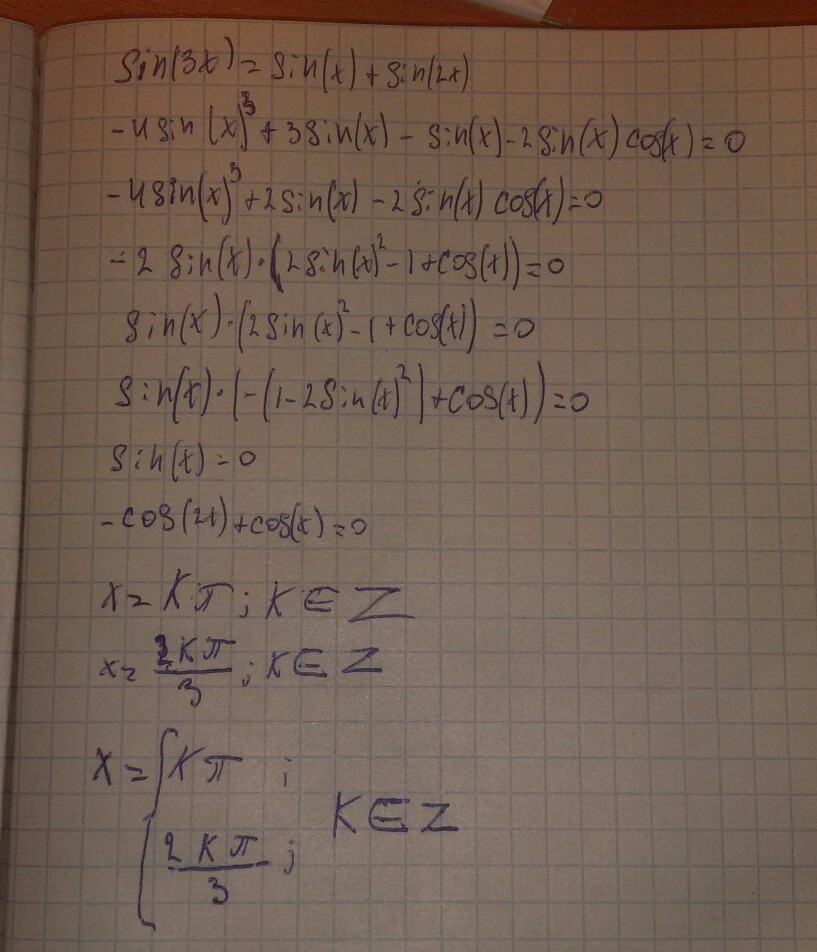 sin(3x) = sin(x) + sin(2x)
-4sin(x)³ + 3sin(x) - sin(x) - 2sin(x) cos(x) = 0
-4sin(x)³ + 2sin(x) - 2sin(x) cos(x) = 0
-2 sin(x)·(2sin(x)² - 1 + cos(x)) = 0
sin(x)·(2sin(x)² - 1 + cos(x)) = 0
sin(x)·(-(1 - 2sin(x)²) + cos(x)) = 0
sin(x) = 0
-cos(2x) + cos(x) = 0
x = kπ; k ∈ Z
x = 2kπ/3; k ∈ Z
x = { kπ ;
k ∈ Z
2kπ/3 ;